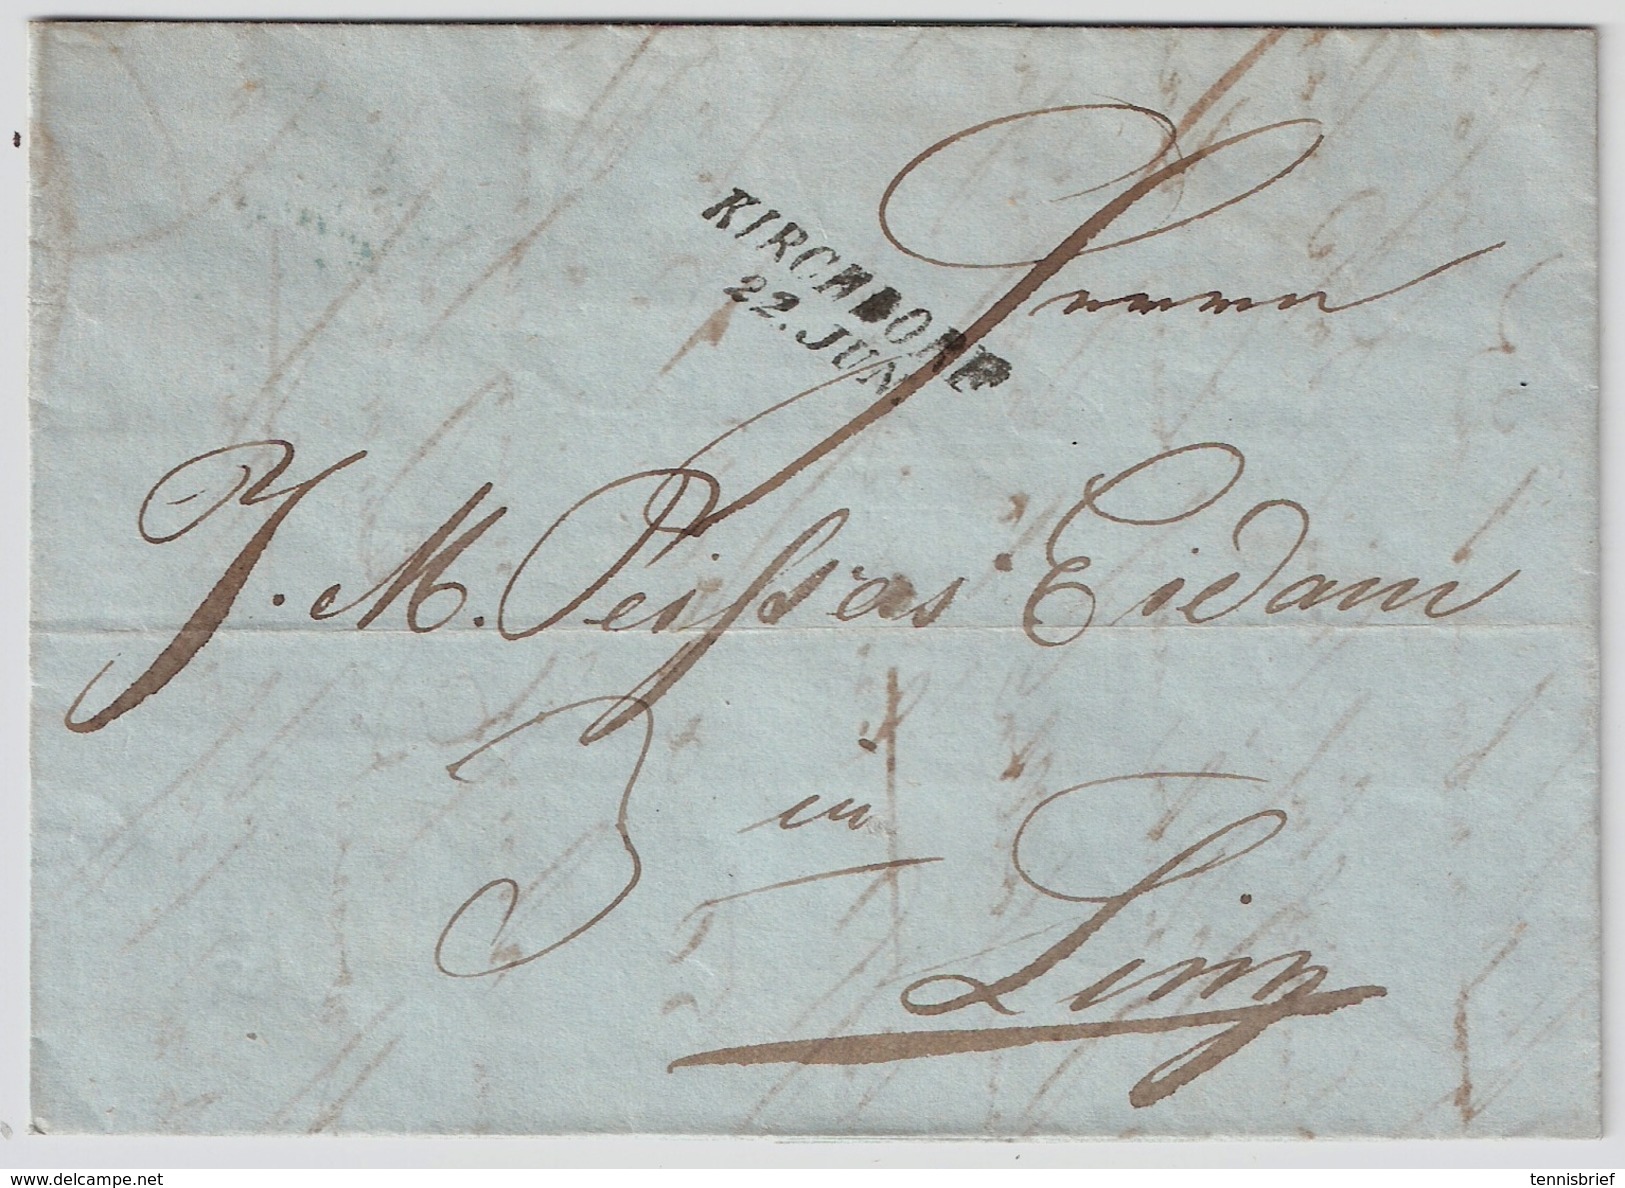 KIRCHDORF
22. JUN.
Herrn
J. M. Peissers Eidam
3
in
Linz
delcampe.net
tennisbrief